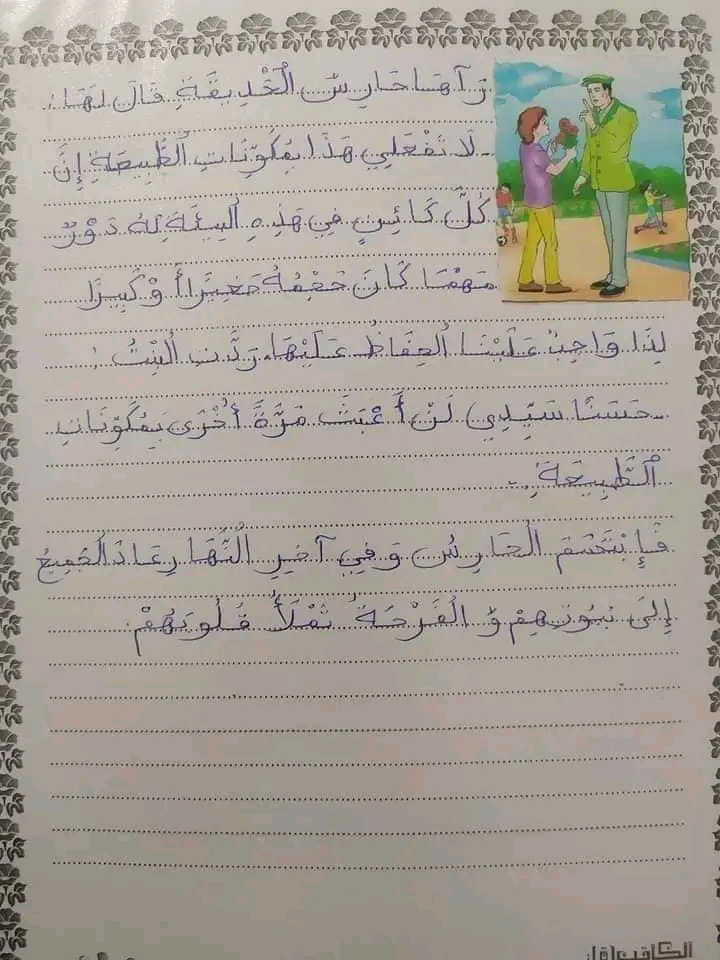 رَآهَا حَارِسُ الْحَدِيقَةِ قَالَ لَهَا:
- لَا تَفْعَلِي هَذَا بِمُكَوِّنَاتِ الطَّبِيعَةِ إِنَّ
كُلَّ كَائِنٍ فِي هَذِهِ الْبِيئَةِ لَهُ دَوْرٌ
مَهْمَا كَانَ حَجْمُهُ صَغِيرًا أَوْ كَبِيرًا
لِذَا وَاجِبٌ عَلَيْنَا الْحِفَاظُ عَلَيْهَا. رَدَّتِ الْبِنْتُ:
- حَسَنًا سَيِّدِي لَنْ أَعْبَثَ مَرَّةً أُخْرَى بِمُكَوِّنَاتِ
الطَّبِيعَةِ.
فَإِبْتَسَمَ الْحَارِسُ وَفِي آخِرِ النَّهَارِ عَادَ الْجَمِيعُ
إِلَى بُيُوتِهِمْ وَ الْفَرْحَةُ تَمْلَأُ قُلُوبَهُمْ.